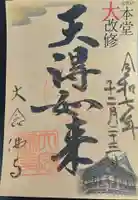 本堂
大改修
令和六年
十二月二十二日
天得如来
大念佛寺